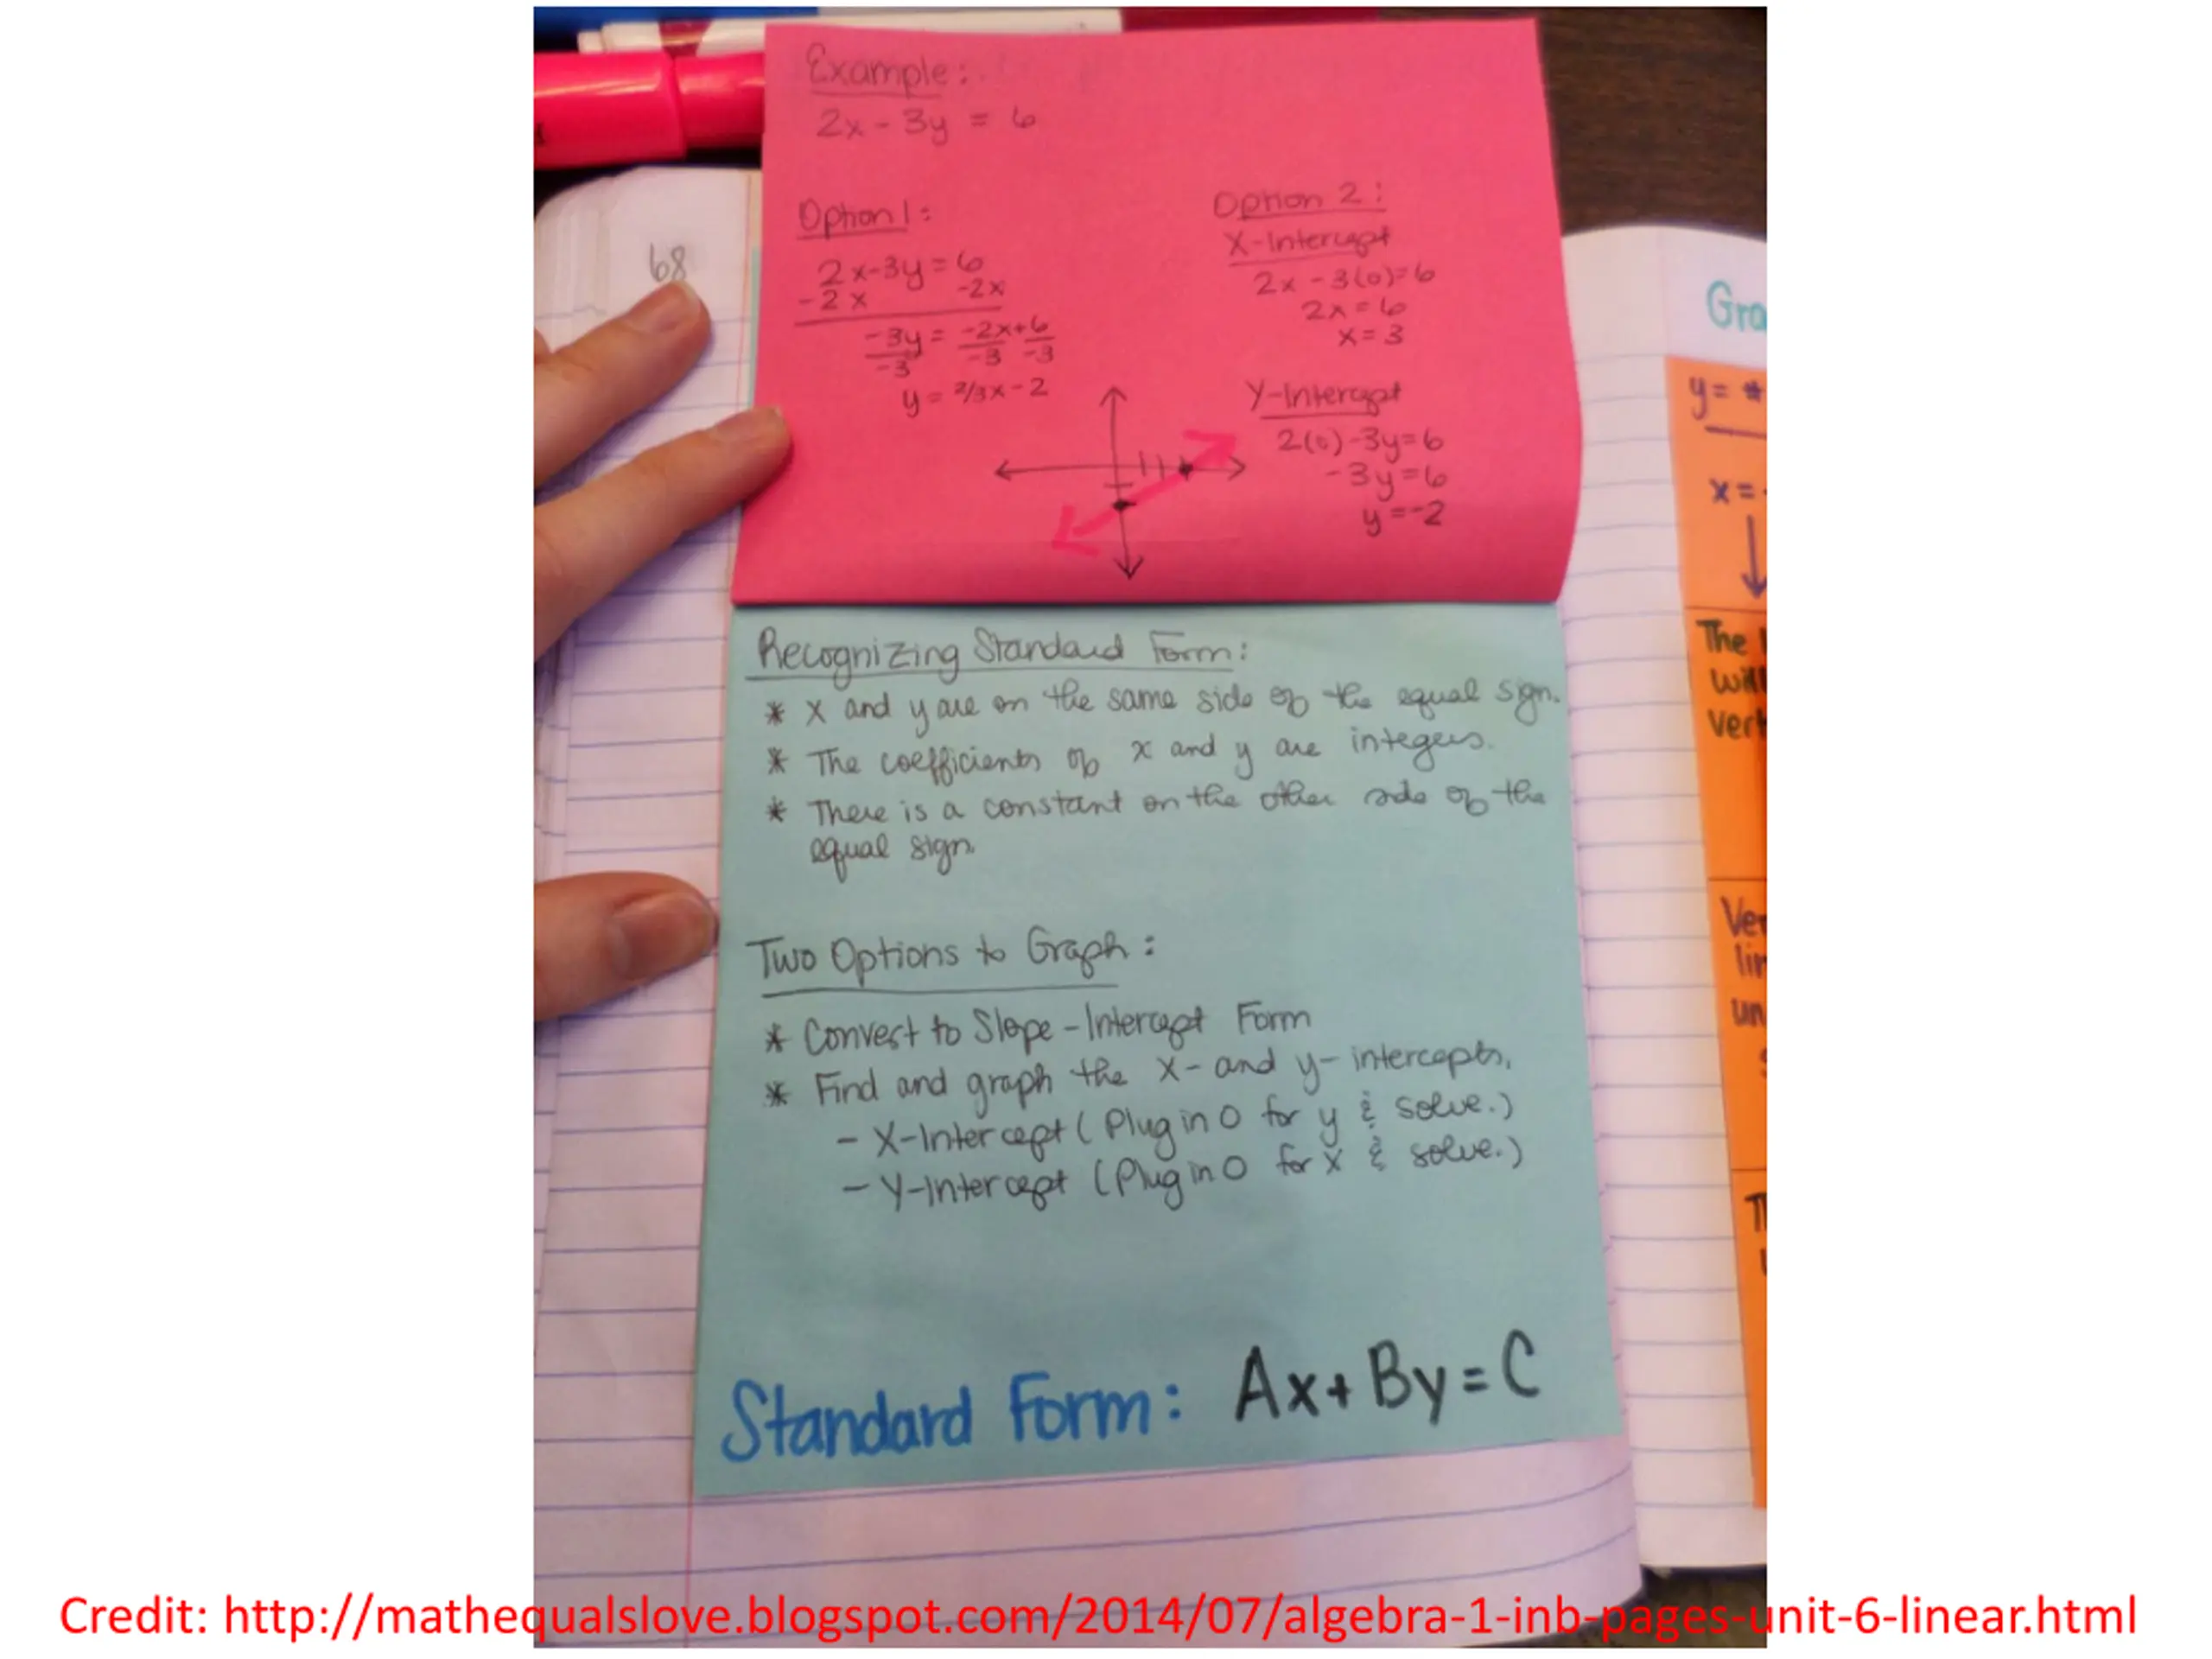 Example:
2x - 3y = 6
Option 1:
2x-3y=6
-2x -2x
-3y = -2x+6
-3 -3 -3
y = 2/3x - 2
Option 2:
X-Intercept
2x - 3(0)=6
2x = 6
x = 3
Y-Intercept
2(0)-3y=6
-3y=6
y=-2
68
Recognizing Standard Form:
* X and y are on the same side of the equal sign.
* The coefficients of x and y are integers.
* There is a constant on the other side of the
equal sign.
Two Options to Graph:
* Convert to Slope-Intercept Form
* Find and graph the x- and y-intercepts.
- X-Intercept (Plug in 0 for y & solve.)
- Y-Intercept (Plug in 0 for x & solve.)
Standard Form: Ax+By=C
Gra
y= *
x=
The
will
vert
Ver
lin
un
Credit: http://mathequalslove.blogspot.com/2014/07/algebra-1-inb-pages-unit-6-linear.html